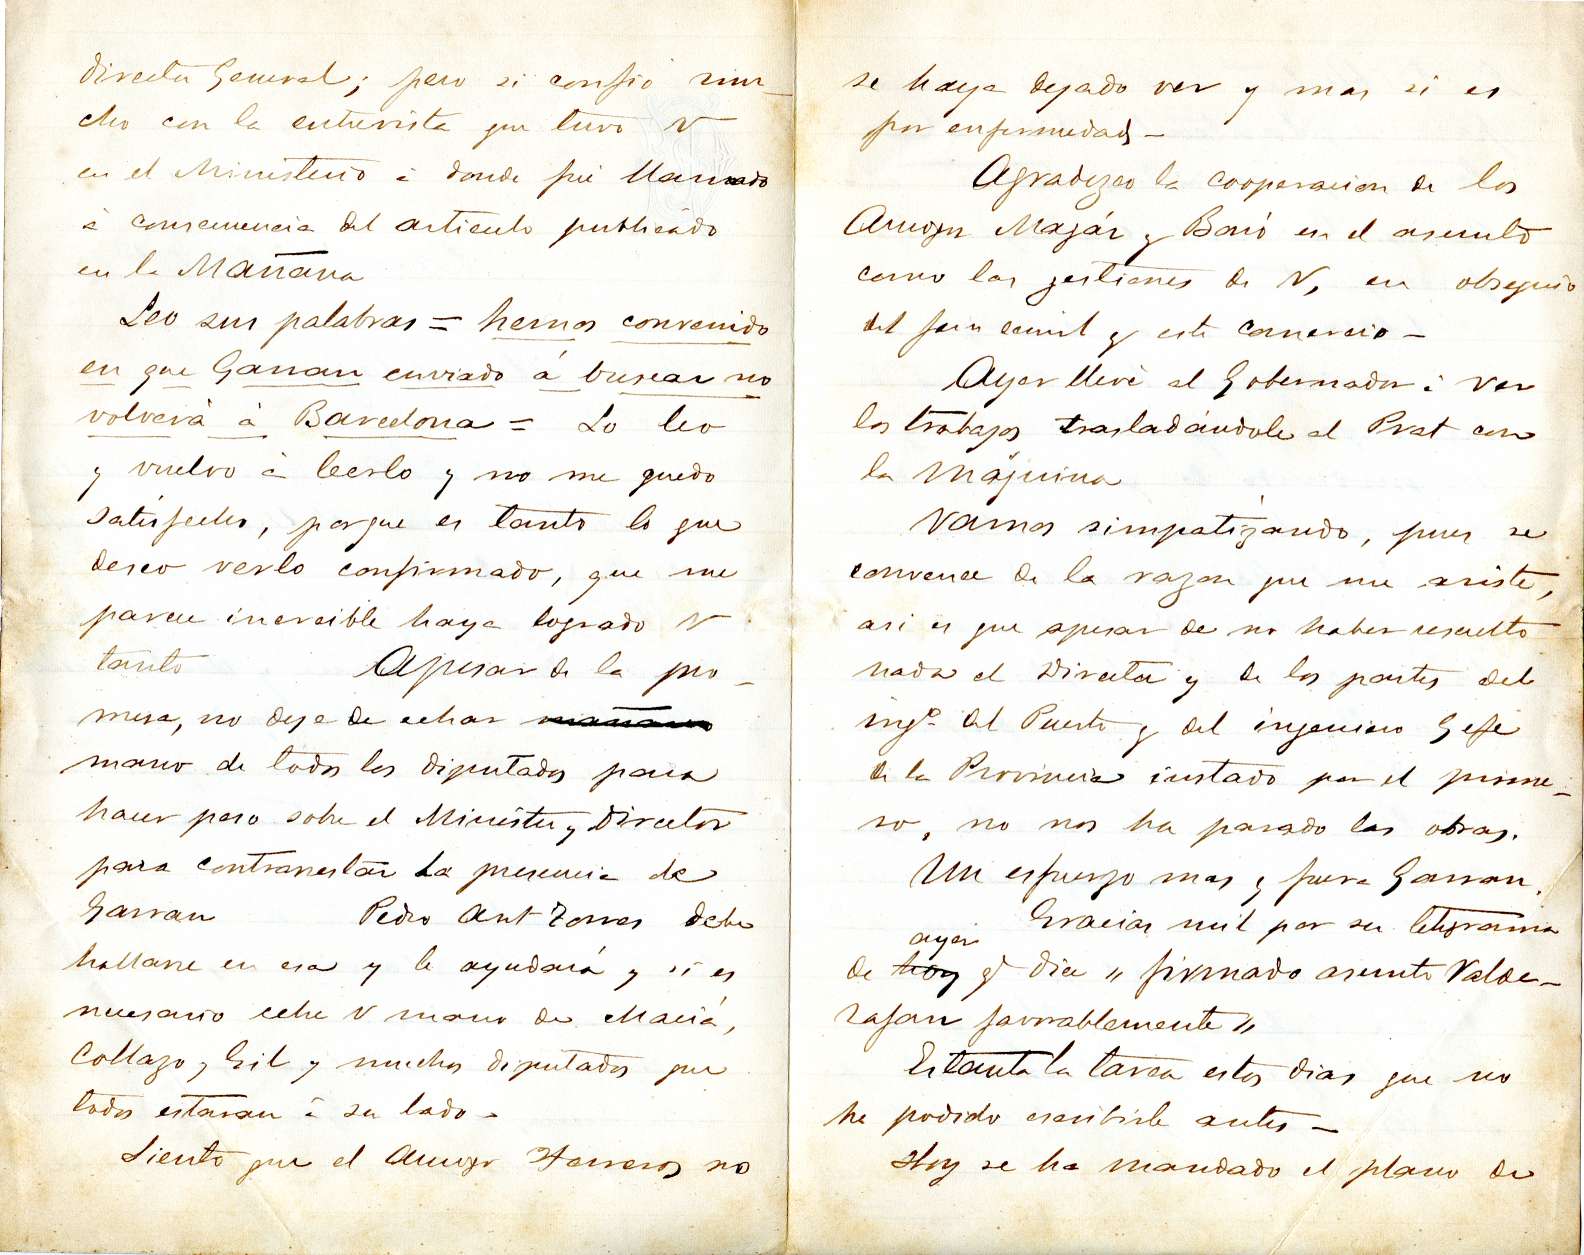 director General; pero si confio mu-
cho con la entrevista que tuvo V
en el Ministerio á donde fué llamado
á consecuencia del articulo publicado
en la Mañana
Leo sus palabras = hemos convenido
en que Garran enviado á buscar no
volverá á Barcelona = Lo leo
y vuelvo á leerlo y no me quedo
satisfecho, porque es tanto lo que
deseo verlo confirmado, que me
parece increible haya logrado V
tanto Apesar de la pro-
mesa, no deje de echar
mano de todos los diputados para
hacer peso sobre el Ministro y Director
para contrarrestar la presencia de
Garran Pedro Ant Torres debe
hallarse en esa y le ayudará y si es
necesario eche V mano de Maciá,
Collazo, Gil y muchos diputados que
todos estaran á su lado-
Siento que el Amigo Herreros no
se haya dejado ver y mas si es
por enfermedad-
Agradezco la cooperacion de los
Amigos Majár y Baró en el asunto
como las gestiones de V, en obsequio
del ferro carril y este comercio-
Ayer llevé al Gobernador á ver
los trabajos trasladándole al Prat con
la Máquina
Vamos simpatizando, pues se
convence de la razon que me asiste,
asi es que apesar de no haber resuelto
nada el Director y de los partes del
ingº del Puerto y del ingeniero Gefe
de la Provincia instado por el prime-
ro, no nos ha parado las obras.
Un esfuerzo mas y fuera Garran.
Gracias mil por su telegrama
ayer
de hoy q̄ dice " firmado asunto Valde-
zafan favorablemente "
Es tanta la tarea estos dias que no
he podido escribirle antes-
Hoy se ha mandado el plano de